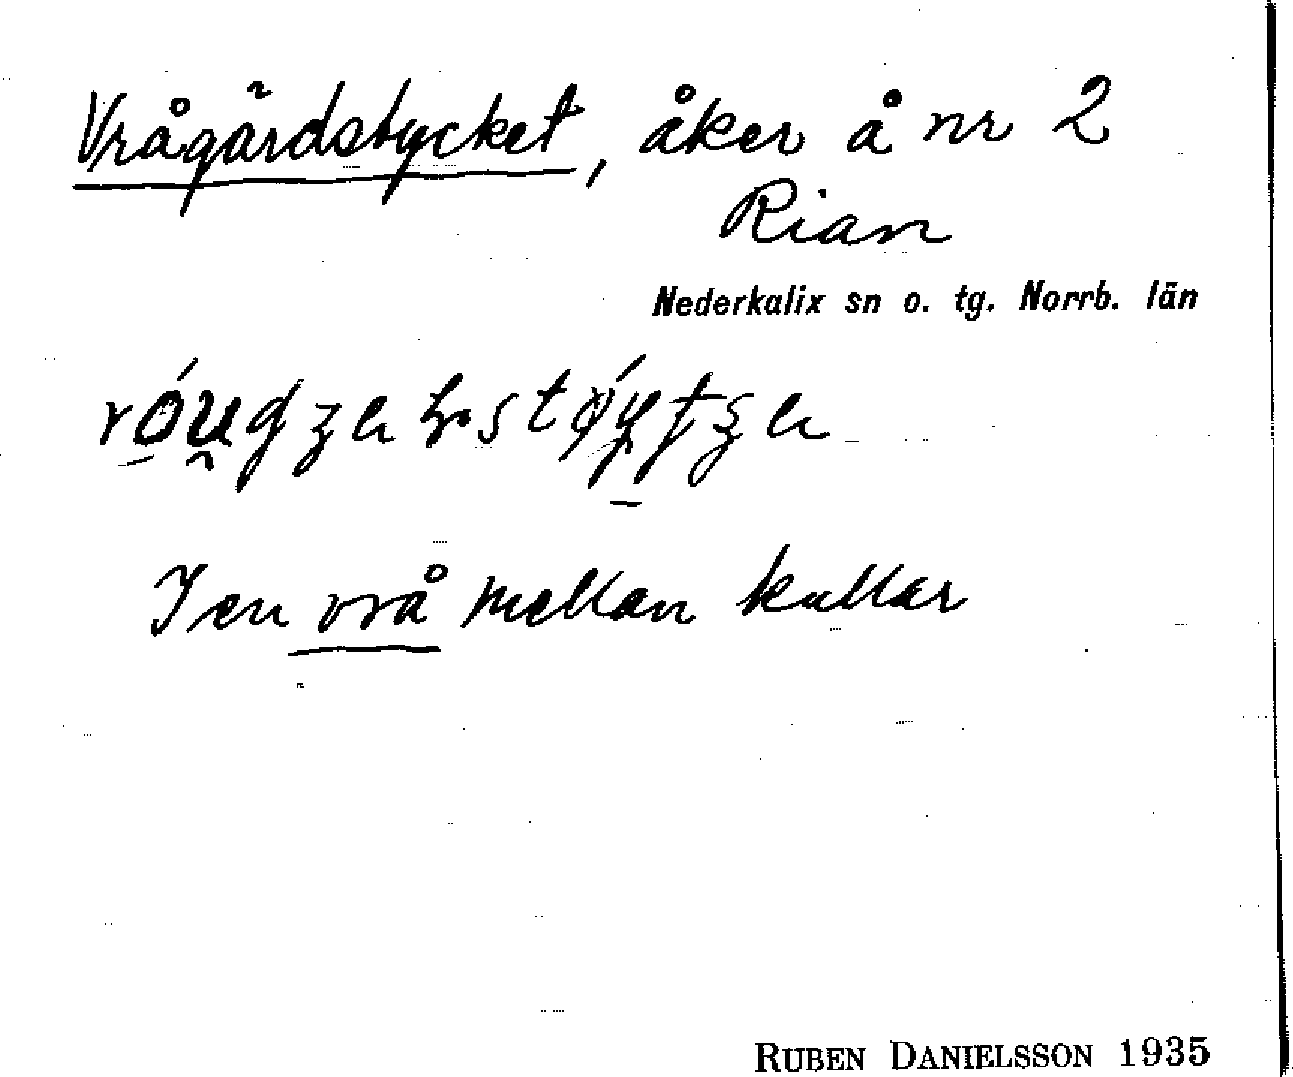 Vrågärdstycket, åker å nr 2
Rian
Nederkalix sn o. tg. Norrb. län
I en vrå mellan kullar
RUBEN DANIELSSON 1935